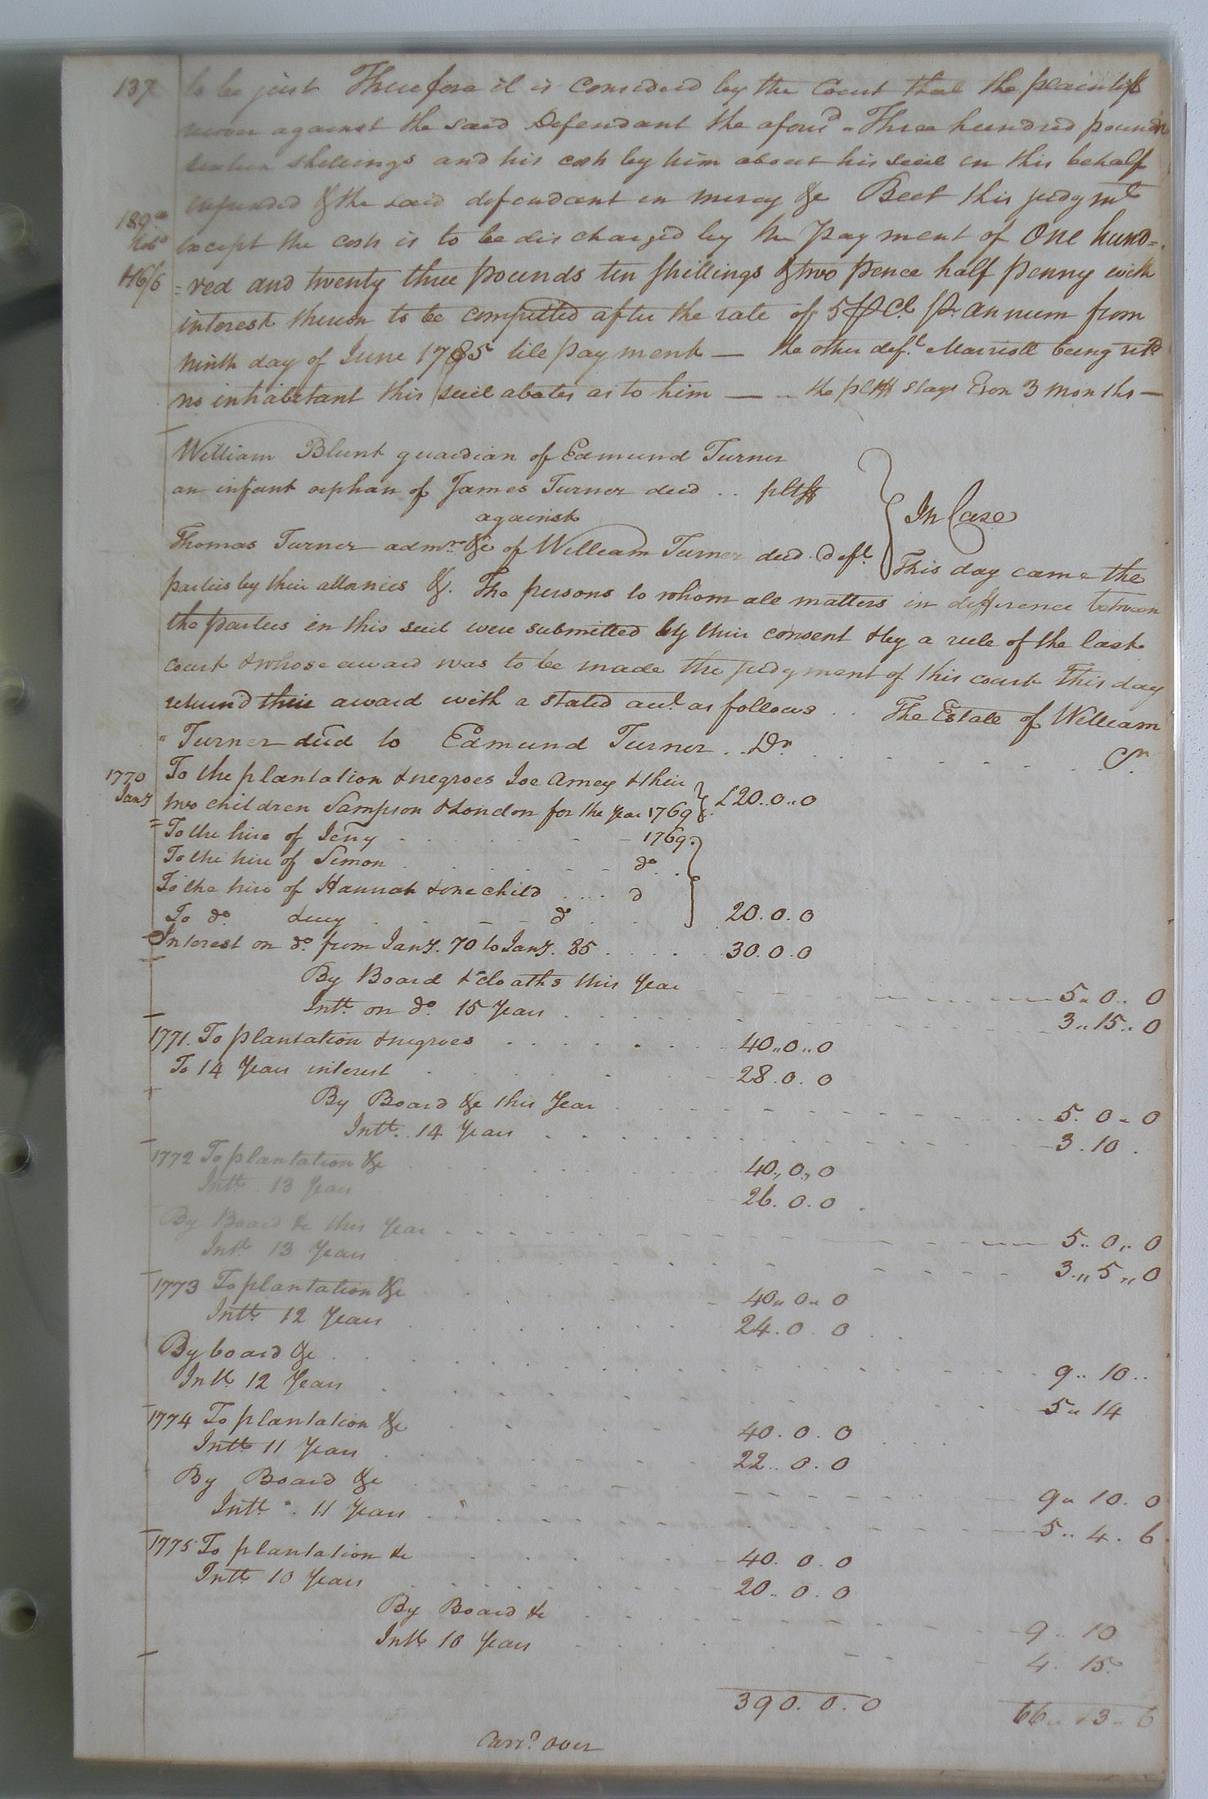 137 to be just Therefore it is Considered by the Court that the plaintiff
recover against the said Defendant the afores'd Three hundred pounds
shillings and his costs by him about his suit in this behalf
expended & the said defendant in mercy &c But this judgmt
139
except the costs is to be discharged by the payment of One hund=
H6/6 =red and twenty three pounds ten shillings & two pence half penny with
interest thereon to be computed after the rate of 5 P Ct. Pr. annum from
ninth day of June 1785 till payment — the other deft. Marriott being retd
no inhabitant this suit abates as to him — the pltff stays Exon 3 months —
William Blunt guardian of Edmund Turner
an infant orphan of James Turner decd .. pltff
against
In Case
Thomas Turner admr. &c of William Turner decd deft.
This day came the
parties by their attornies &c. The persons to whom all matters in difference between
the parties in this suit were submitted by their consent & by a rule of the last
court & whose award was to be made the judgment of this court This day
returnd their award with a stated acct. as follows .. The Estate of William
Turner decd to Edmund Turner .. Dr. Cr.
1770 To the plantation & negroes Joe Amey & their
Jany two children Sampson & London for the Year 1769 £20..0..0
To the hire of Jeny 1769.
To the hire of Simon do
To the hire of Hannah & one child .... d
To do. Lucy do 20.0.0
Interest on do. from Jany. 70 to Jany. 85 .... 30.0.0
By Board & cloaths this Year 5..0..0
Intt. on do. 15 Years 3..15..0
1771. To plantation & negroes 40..0..0
To 14 Years interest 28.0.0
By Board &c this Year 5.0..0
Intt. 14 Years 3.10.
1772 To plantation &c 40..0..0
Intt. 13 Years 26.0.0
By Board &c this Year 5..0..0
Intt. 13 Years 3..5..0
1773 To plantation &c 40..0..0
Intt. 12 Years 24.0.0
By board &c 9..10..
Intt. 12 Years 5..14
1774 To plantation &c 40.0.0
Intt. 11 Years 22..0.0
By Board &c 9..10.0
Intt. 11 Years 5..4.6
1775 To plantation &c 40.0.0
Intt. 10 Years 20..0.0
By Board &c 9..10
Intt. 10 Years 4.15.
390.0.0 66..13..6
Carrd. over